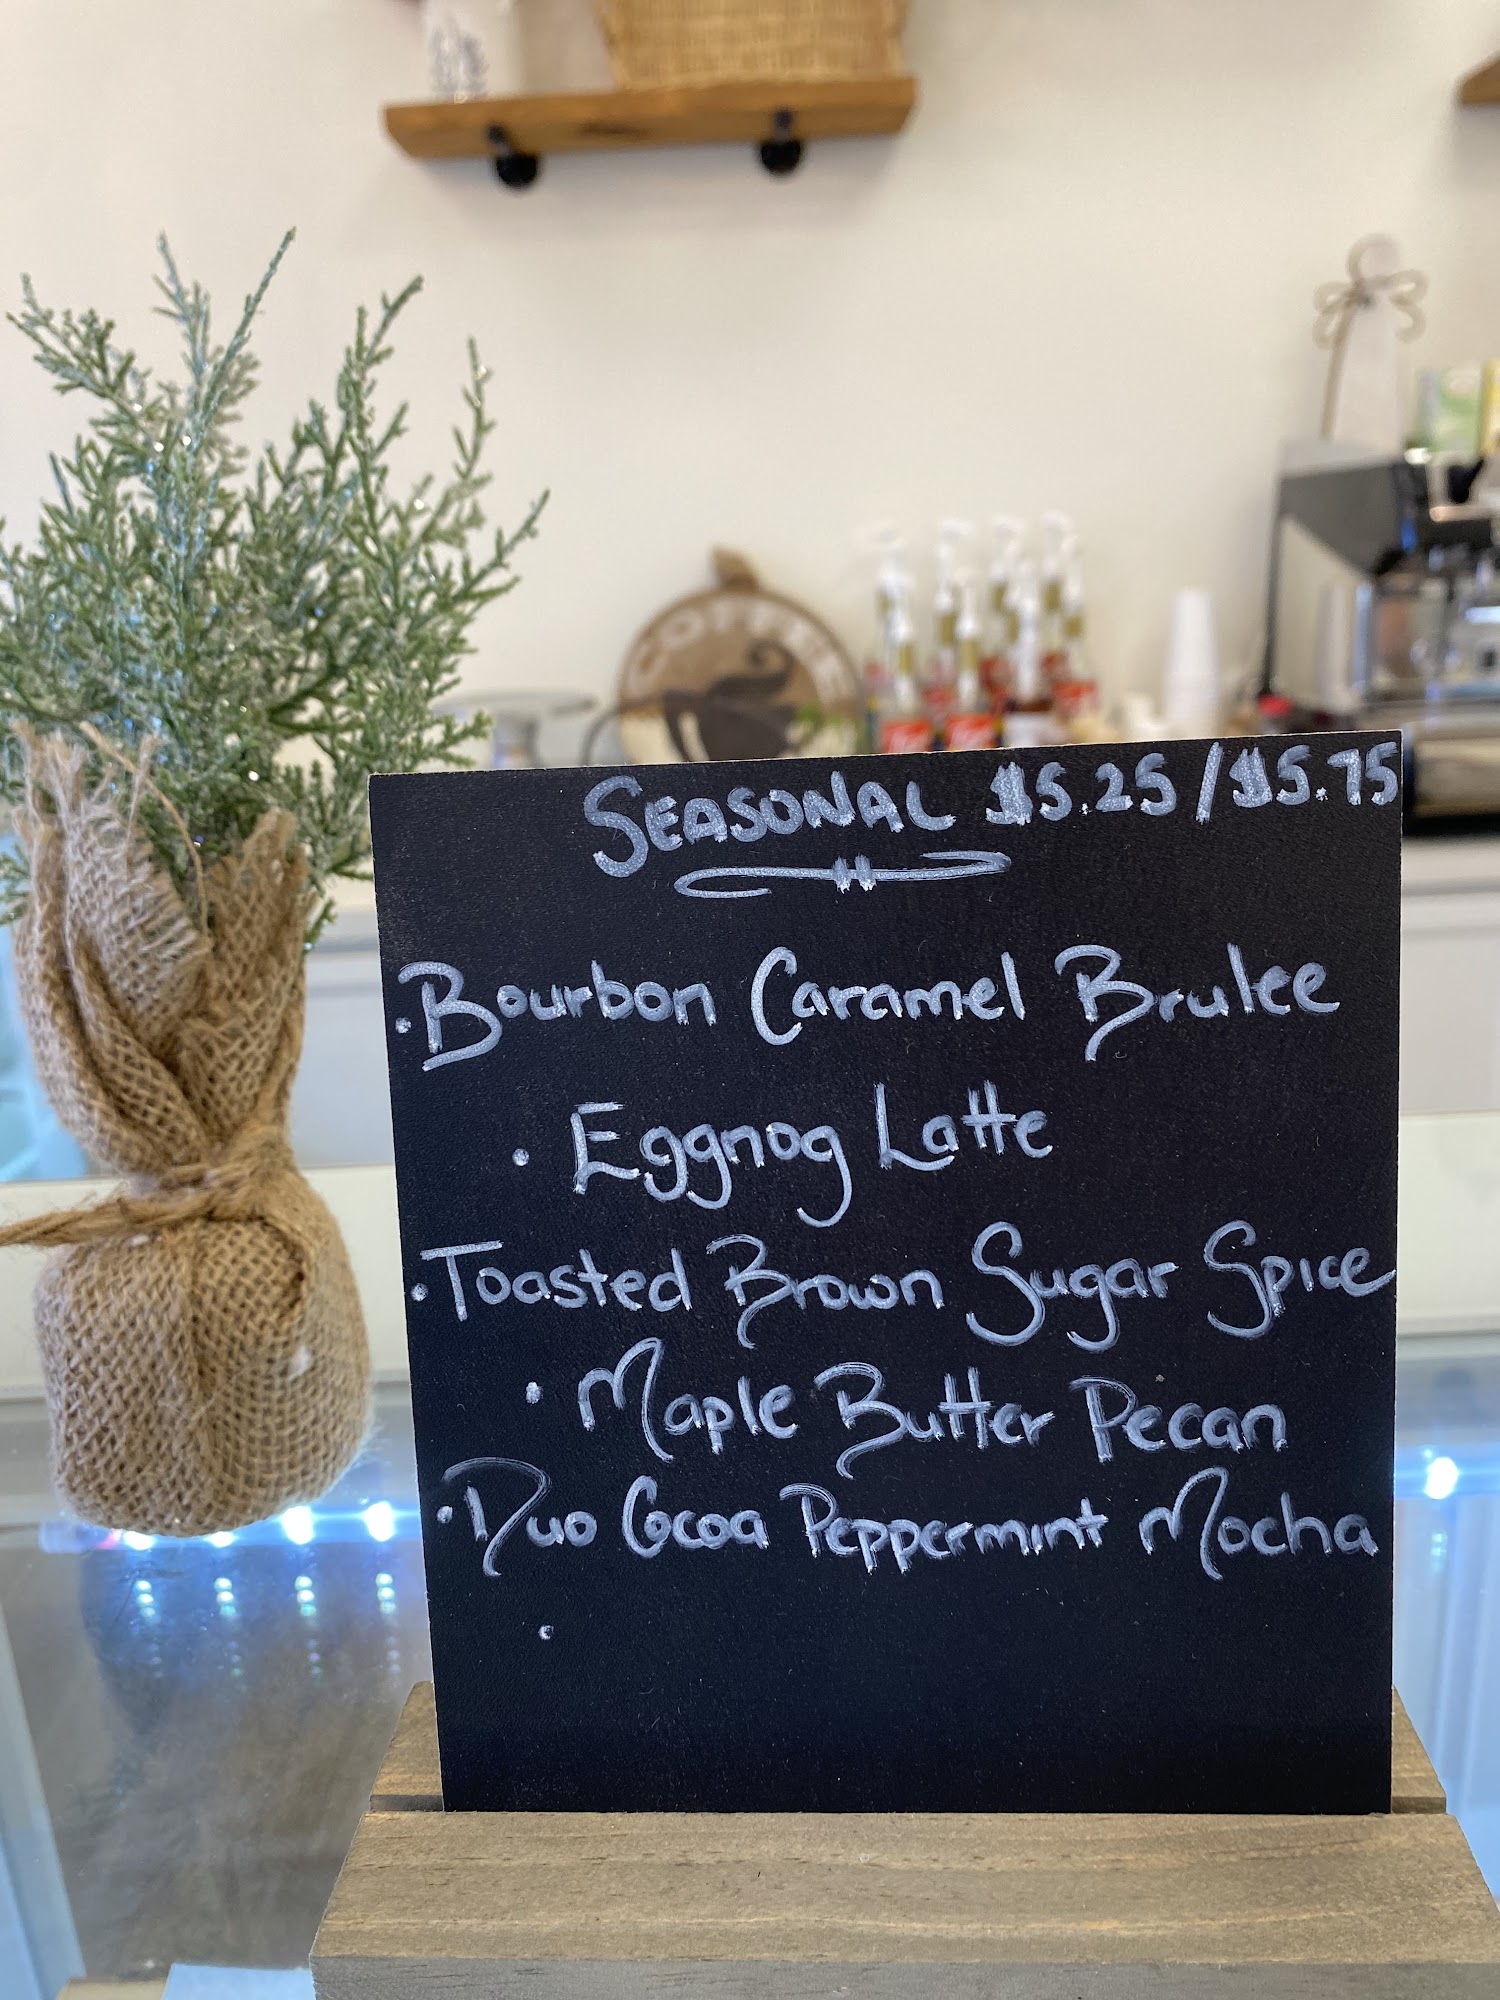 COFFEE
SEASONAL $5.25/$5.75
• Bourbon Caramel Brulee
• Eggnog Latte
• Toasted Brown Sugar Spice
• Maple Butter Pecan
• Duo Cocoa Peppermint Mocha
•